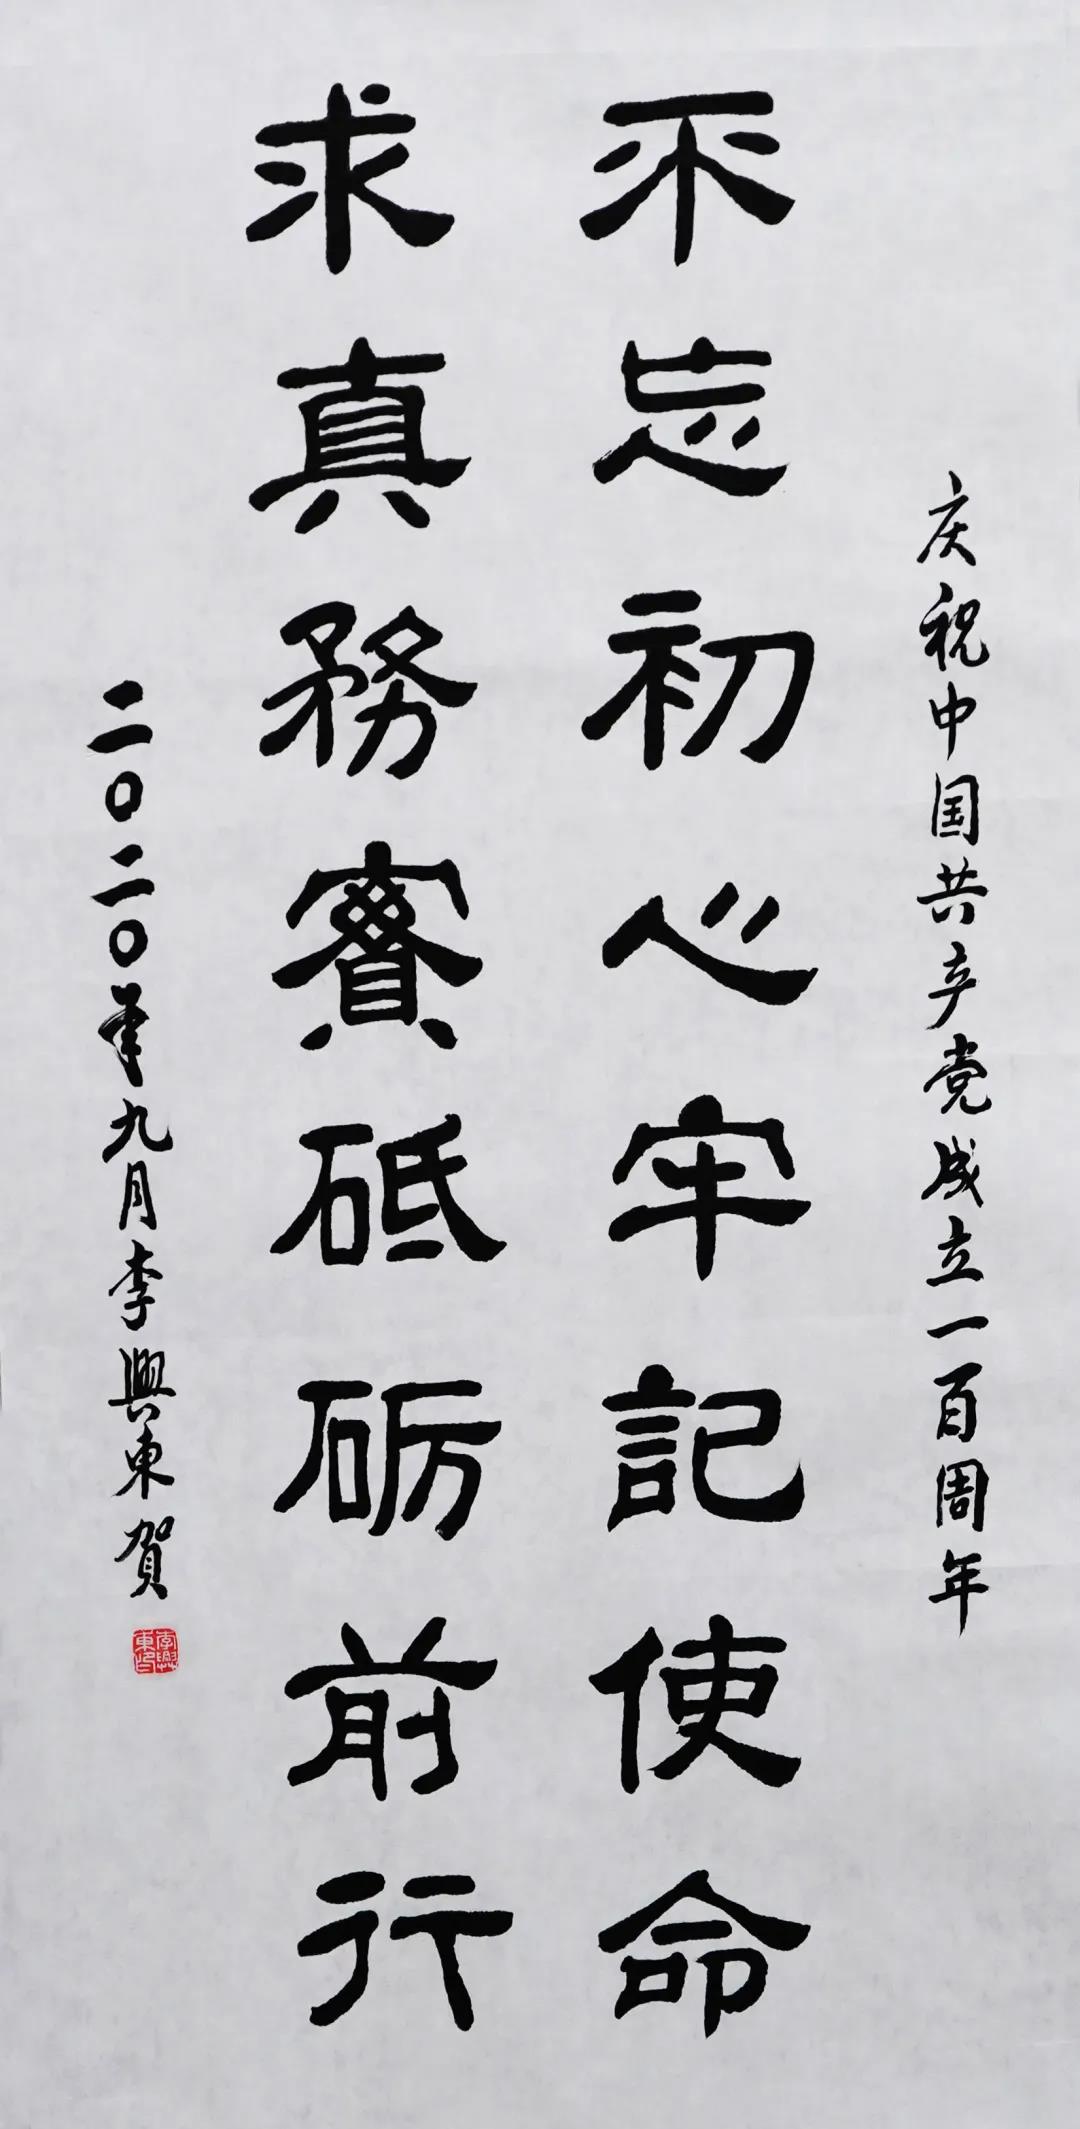 庆祝中国共产党成立一百周年
不忘初心牢記使命
求真務實砥砺前行
二〇二〇年九月李興東賀
李興東印